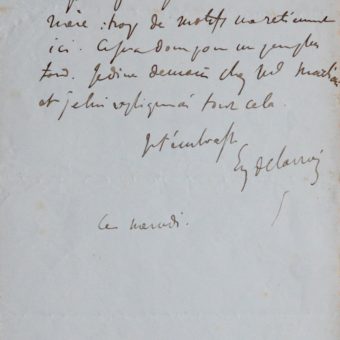 mère : trop de motifs me retiennent
ici. Ce sera donc pour un peu plus
tard. Je dîne demain chez
et je lui expliquerai tout cela.
Je t'embrasse
Eug Delacroix
Ce mercredi.